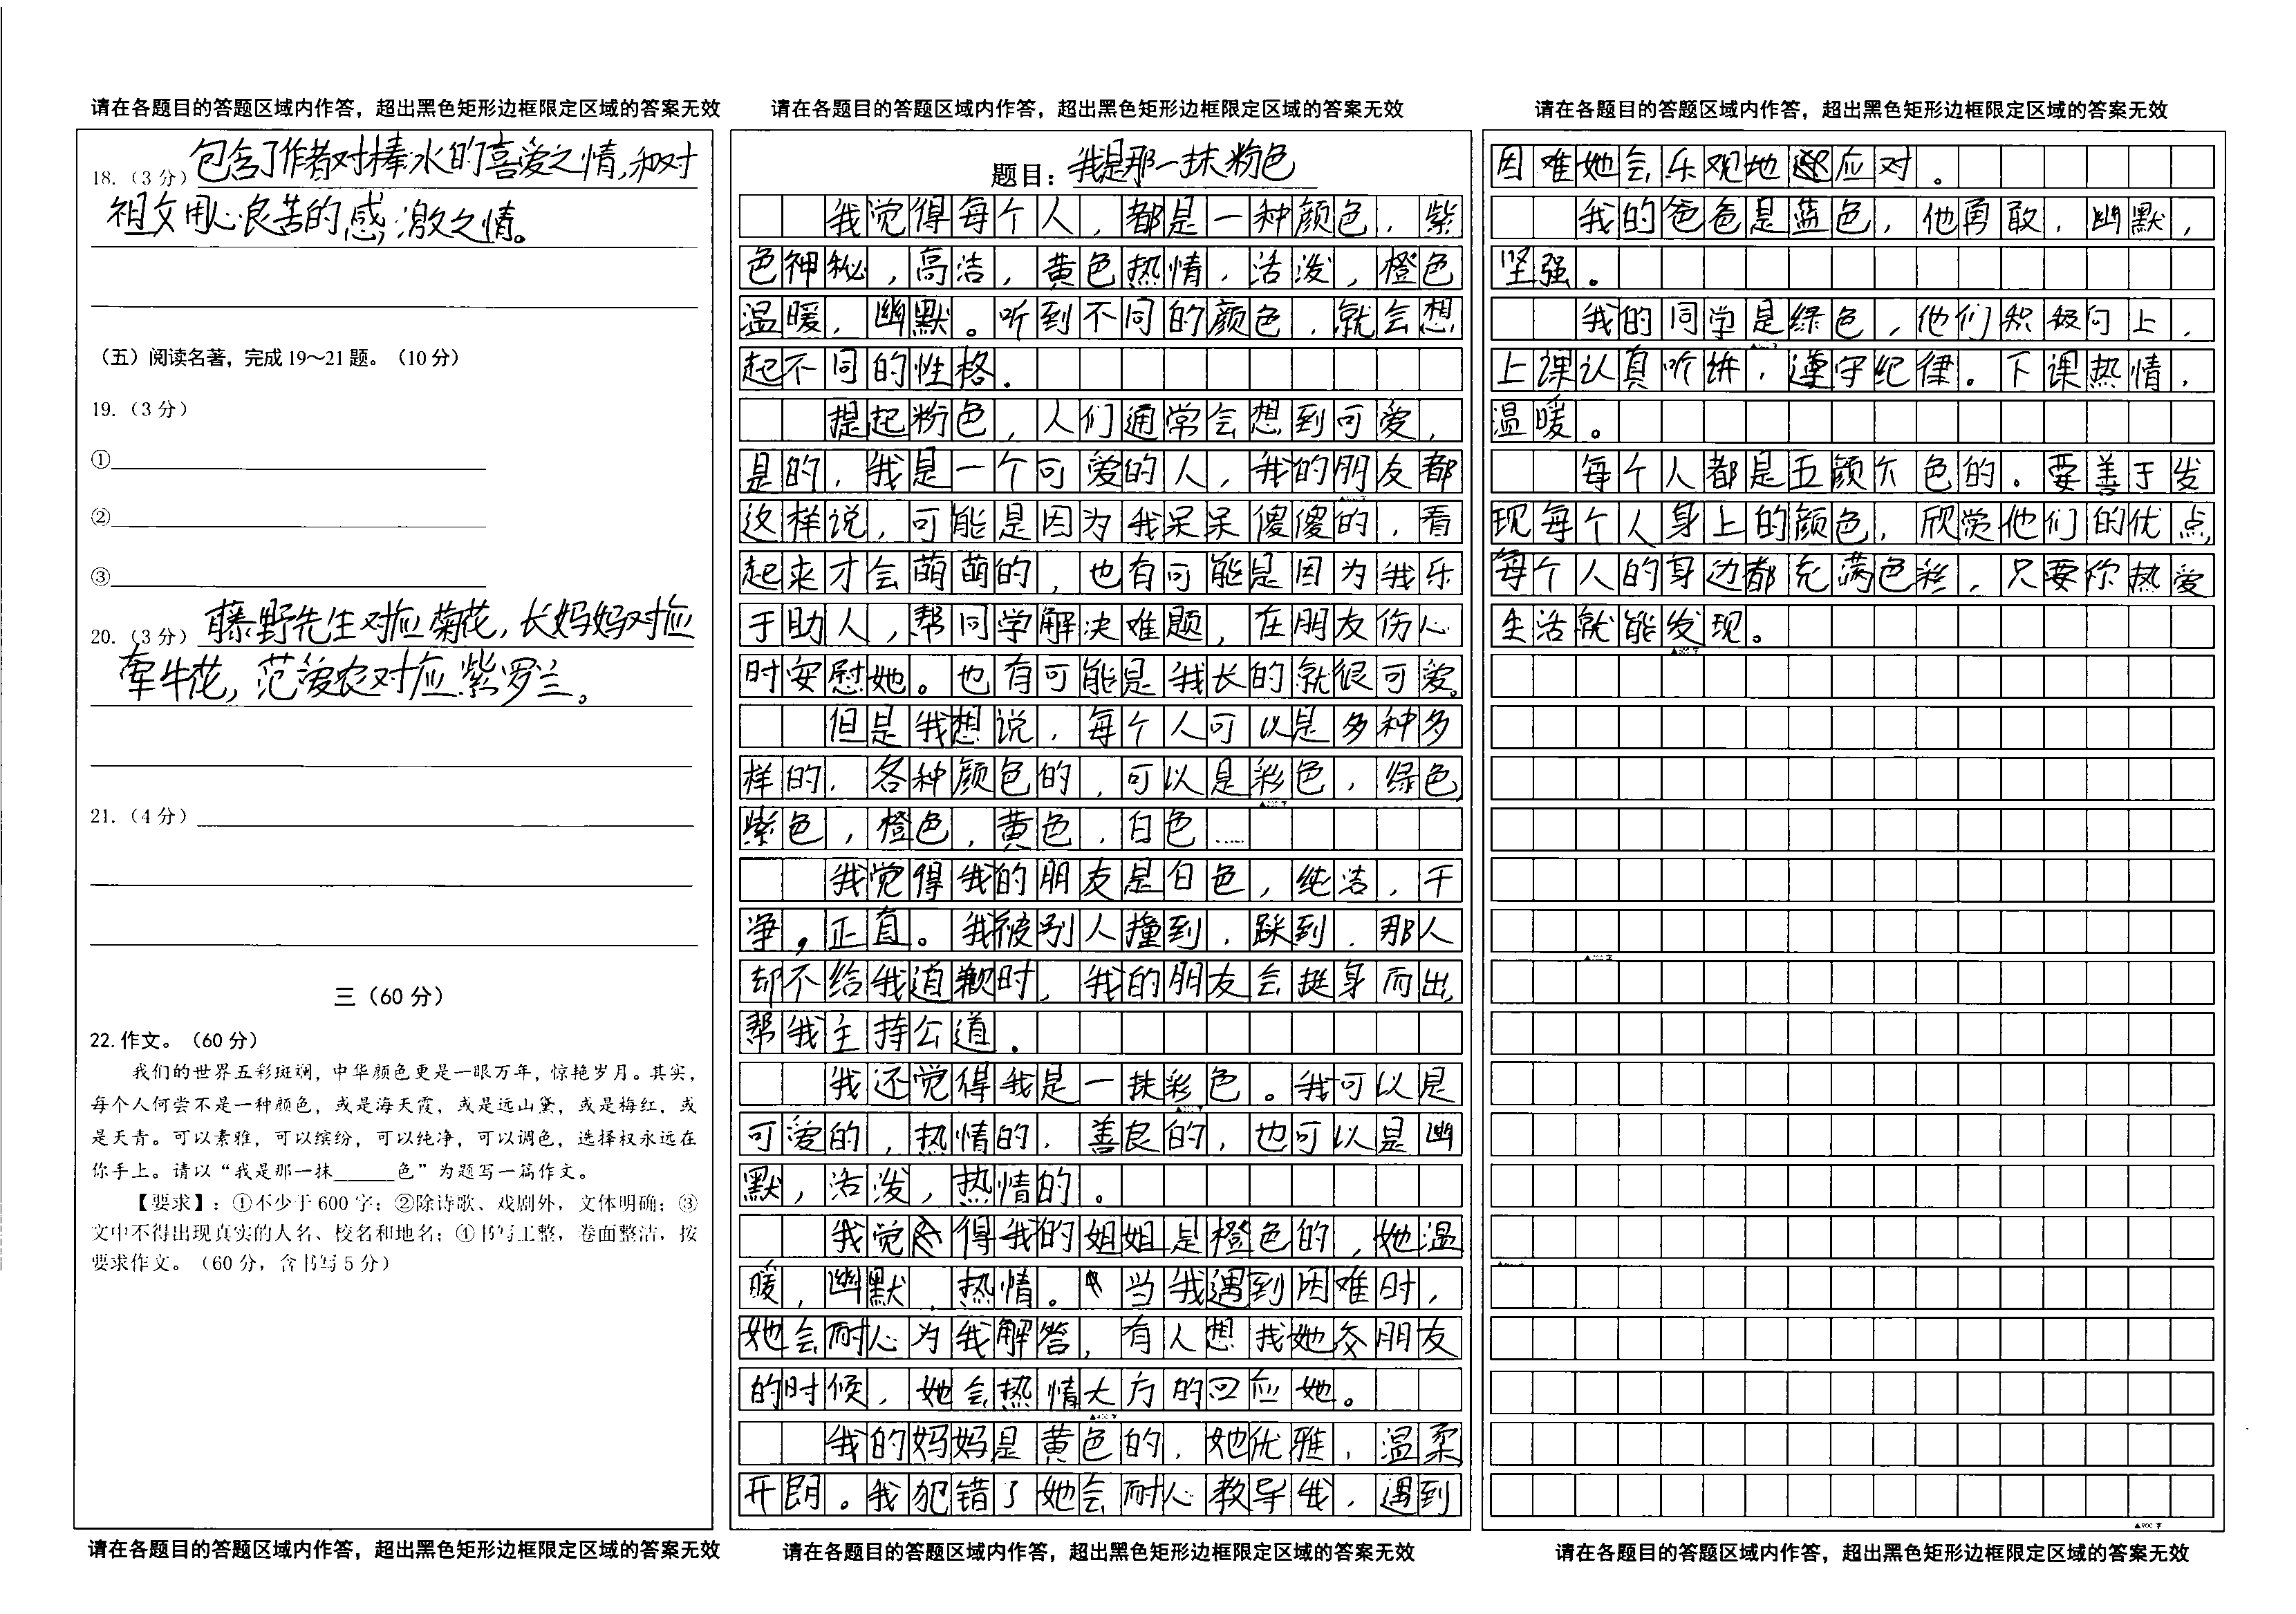 请在各题目的答题区域内作答，超出黑色矩形边框限定区域的答案无效
18.（3分）包含了作者对棒水的喜爱之情,和对
祖父用心良苦的感激之情。
（五）阅读名著，完成19～21题。（10分）
19.（3分）
①
②
③
20.（3分）藤野先生对应菊花,长妈妈对应
牵牛花,范爱农对应紫罗兰。
21.（4分）
三（60分）
22.作文。（60分）
我们的世界五彩斑斓，中华颜色更是一眼万年，惊艳岁月。其实，
每个人何尝不是一种颜色，或是海天霞，或是远山黛，或是梅红，或
是天青。可以素雅，可以缤纷，可以纯净，可以调色，选择权永远在
你手上。请以“我是那一抹______色”为题写一篇作文。
【要求】：①不少于600字；②除诗歌、戏剧外，文体明确；③
文中不得出现真实的人名、校名和地名；④书写工整，卷面整洁，按
要求作文。（60分，含书写5分）
请在各题目的答题区域内作答，超出黑色矩形边框限定区域的答案无效
请在各题目的答题区域内作答，超出黑色矩形边框限定区域的答案无效
题目：我是那一抹粉色
我觉得每个人，都是一种颜色，紫
色神秘，高洁，黄色热情，活泼，橙色
温暖，幽默。听到不同的颜色，就会想
起不同的性格.
提起粉色，人们通常会想到可爱，
是的，我是一个可爱的人，我的朋友都
这样说，可能是因为我呆呆傻傻的，看
起来才会萌萌的，也有可能是因为我乐
于助人，帮同学解决难题，在朋友伤心
时安慰她。也有可能是我长的就很可爱。
但是我想说，每个人可以是多种多
样的，各种颜色的，可以是彩色，绿色,
紫色，橙色，黄色，白色……
我觉得我的朋友是白色，纯洁，干
净，正直。我被别人撞到，跌到，那人
却不给我道歉时，我的朋友会挺身而出,
帮我主持公道.
我还觉得我是一抹彩色。我可以是
可爱的，热情的，善良的，也可以是幽
默，活泼，热情的。
我觉得我的姐姐是橙色的，她温
暖，幽默，热情。当我遇到困难时，
她会耐心为我解答，有人想找她交朋友
的时候，她会热情大方的回应她。
▲400字
我的妈妈是黄色的，她优雅，温柔
开朗。我犯错了她会耐心教导我，遇到
请在各题目的答题区域内作答，超出黑色矩形边框限定区域的答案无效
请在各题目的答题区域内作答，超出黑色矩形边框限定区域的答案无效
因难她会乐观地应对。
我的爸爸是蓝色，他勇敢，幽默，
坚强。
我的同学是绿色，他们积极向上，
上课认真听讲，遵守纪律。下课热情，
温暖。
每个人都是五颜六色的。要善于发
现每个人身上的颜色，欣赏他们的优点,
每个人的身边都充满色彩，只要你热爱
生活就能发现。
▲900字
请在各题目的答题区域内作答，超出黑色矩形边框限定区域的答案无效